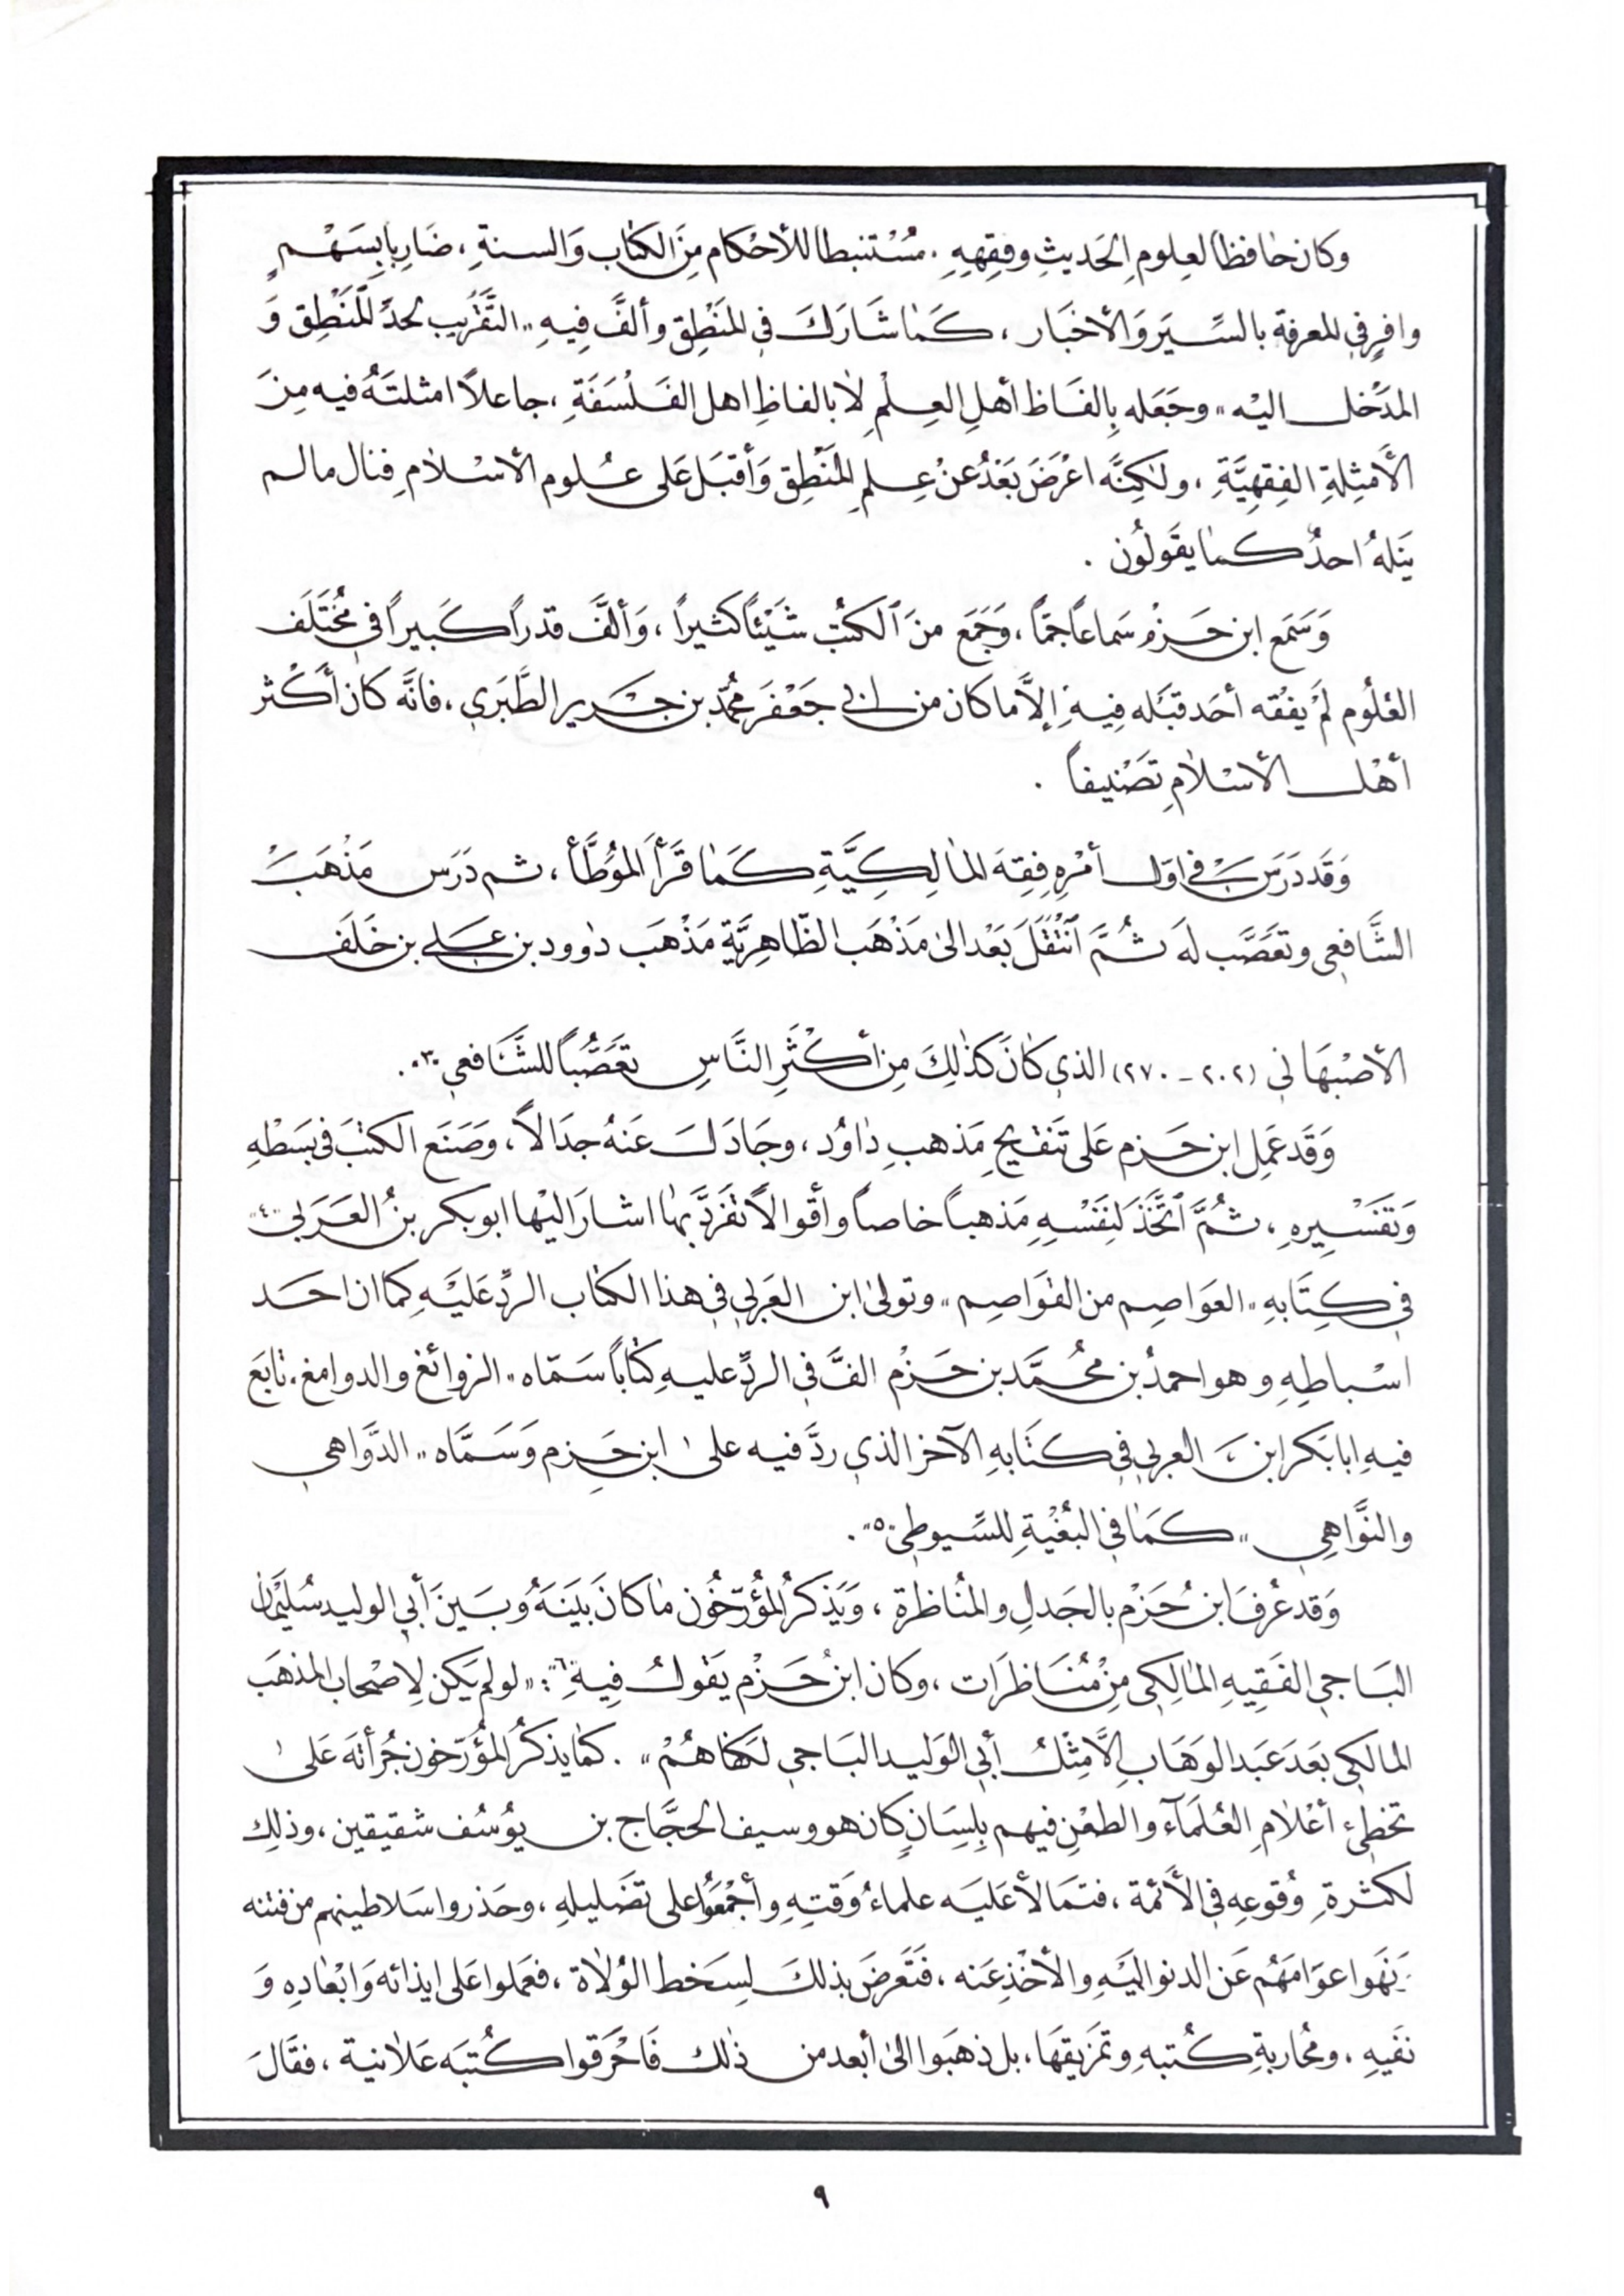 وكان حافظاً لعلوم الحَديثِ وفقِههِ . مُسْتنبطا للأحْكام مِنَ الكتاب وَالسنةِ ، ضَارِبا بِسَهْمٍ
وافرٍ في المعرفة بالسِّيَر وَالأخبَار ، كَمَا شَارَكَ في المَنْطِق وألفَّ فِيهِ « التَّقْريب لحدِّ المَنْطِق وَ
المَدْخل اليْه » وجَعَله بِالفَاظ أهلِ العِلْمِ لا بالفاظِ اهل الفَلْسَفَةِ ، جاعلاً امثلتَهُ فيه مِنَ
الأمْثِلةِ الفِقهِيَّةِ ، ولكِنَّه اعْرَضَ بَعْدُ عنْ عِلمِ المَنْطِق وَأقبَل عَلى عُلوم الاسْلامِ فنال ما لم
يَنلهُ احدٌ كما يقَولُون .
وَسَمَع ابن حَزمْ سَماعاً جمّاً ، وَجَمَع منَ الكتُب شَيْئاً كثيراً ، وَألفَّ قدراً كَبيراً في مُخْتَلَف
العُلُوم لمْ يفُقه أحَد قبَله فِيهِ إلاَّ ما كان من ابي جَعْفَر محُمّد بن جَرير الطَّبَري ، فانَّه كَان أكَثر
أهْل الاسْلامِ تصَنْيفاً .
وَقَد دَرَسَ في اوّل أمْرهِ فِقهَ المالِكِيَّةِ كَمَا قَرَأ المُوَطَّأ ، ثم دَرَس مَذْهَبَ
الشَّافِعي وتعَصَّب لهَ ثُمَّ انْتْقَلَ بَعْد الىٰ مَذْهَب الظّاهِريَّةِ مَذْهَبَ داوود بن عَلي بن خَلَف
الأصْبهَاني (٢٠٢ - ٢٧٠) الذي كانَ كذلِكَ مِن أكْثَرِ النَّاسِ تعَصُّباً للشَّافعي "٣" .
وَقَد عَمِل ابن حَزم عَلى تَنقيحِ مَذهبِ داوُد ، وجَادَلَ عَنهُ جدَالاً ، وَصَنَع الكتبَ في بَسَطْهِ
وَتفَسْيرهِ ، ثُمَّ اتَّخَذَ لنِفَسْهِ مَذهباً خاصاً وأقوالاً تفَرَّد بها اشارَ اليْها ابو بكر بنُ العَرَبي "٤"
في كِتَابهِ « العَوَاصِم من القوَاصِم » وتولىٰ ابن العَربي في هذا الكتاب الردِّ عَليْهِ كما ان احَد
اسْباطِهِ وهو احمدُ بن محُمَّد بن حَزمْ الفَّ في الردِّ عليهِ كتاباً سَمّاه « الزوائغ والدوامغ ، تابَع
فيهِ ابا بَكر ابن العربي في كتَابهِ الآخر الذي ردَّ فيه علىٰ ابن حَزِم وَسَمَّاه « الدَّواهي
والنَّواهِي » كَمَا في البُغْيةِ للسِّيوطِي "٥" .
وَقد عُرفَ ابن حُزَمْ بالجَدلِ والمُناظرةِ ، وَيَذكرُ المُؤرّخُون ما كانَ بيَنَهُ وبَينَ أبي الوليد سُليْمان
البَاجي الفَقِيهِ المالِكي مِنْ مُنَاظرَات ، وكان ابنُ حَزمْ يقَولُ فِيهِ "٦" : « لو لم يَكن لِاصْحاب المذهَب
المالكي بَعَدَ عَبَد الوَهَابِ إلاَّ مِثْلُ أبي الوَليد البَاجي لكَفاهُمْ » . كما يذكرُ المؤرّخون جُرأتهَ عَلىٰ
تخطيء أعْلامِ العُلمَآء والطعْنِ فيهم بِلِسَانٍ كان هو وسيف الحجَّاج بن يوُسُف شقيقين ، وذلِك
لكثرةِ وُقوعِهِ في الأئمة ، فتمَالأ عَليَه علماءُ وَقتِهِ وأجْمَعُوا على تضَليلهِ ، وحَذروا سَلاطينهم من فتنه
وَنَهوا عوَامَهُم عَن الدنو اليَهِ والأخْذِ عَنه ، فَتَعرضَ بذلكَ لِسَخط الوُلاة ، فعَملوا عَلى ايذائه وَابْعادِهِ وَ
نفَيهِ ، ومحُاربةِ كُتبهِ وتمزَيقَها ، بل ذهَبَوا الىٰ أبعد من ذلك فَاحْرَقوا كُتبَه عَلانية ، فقَالَ
٩